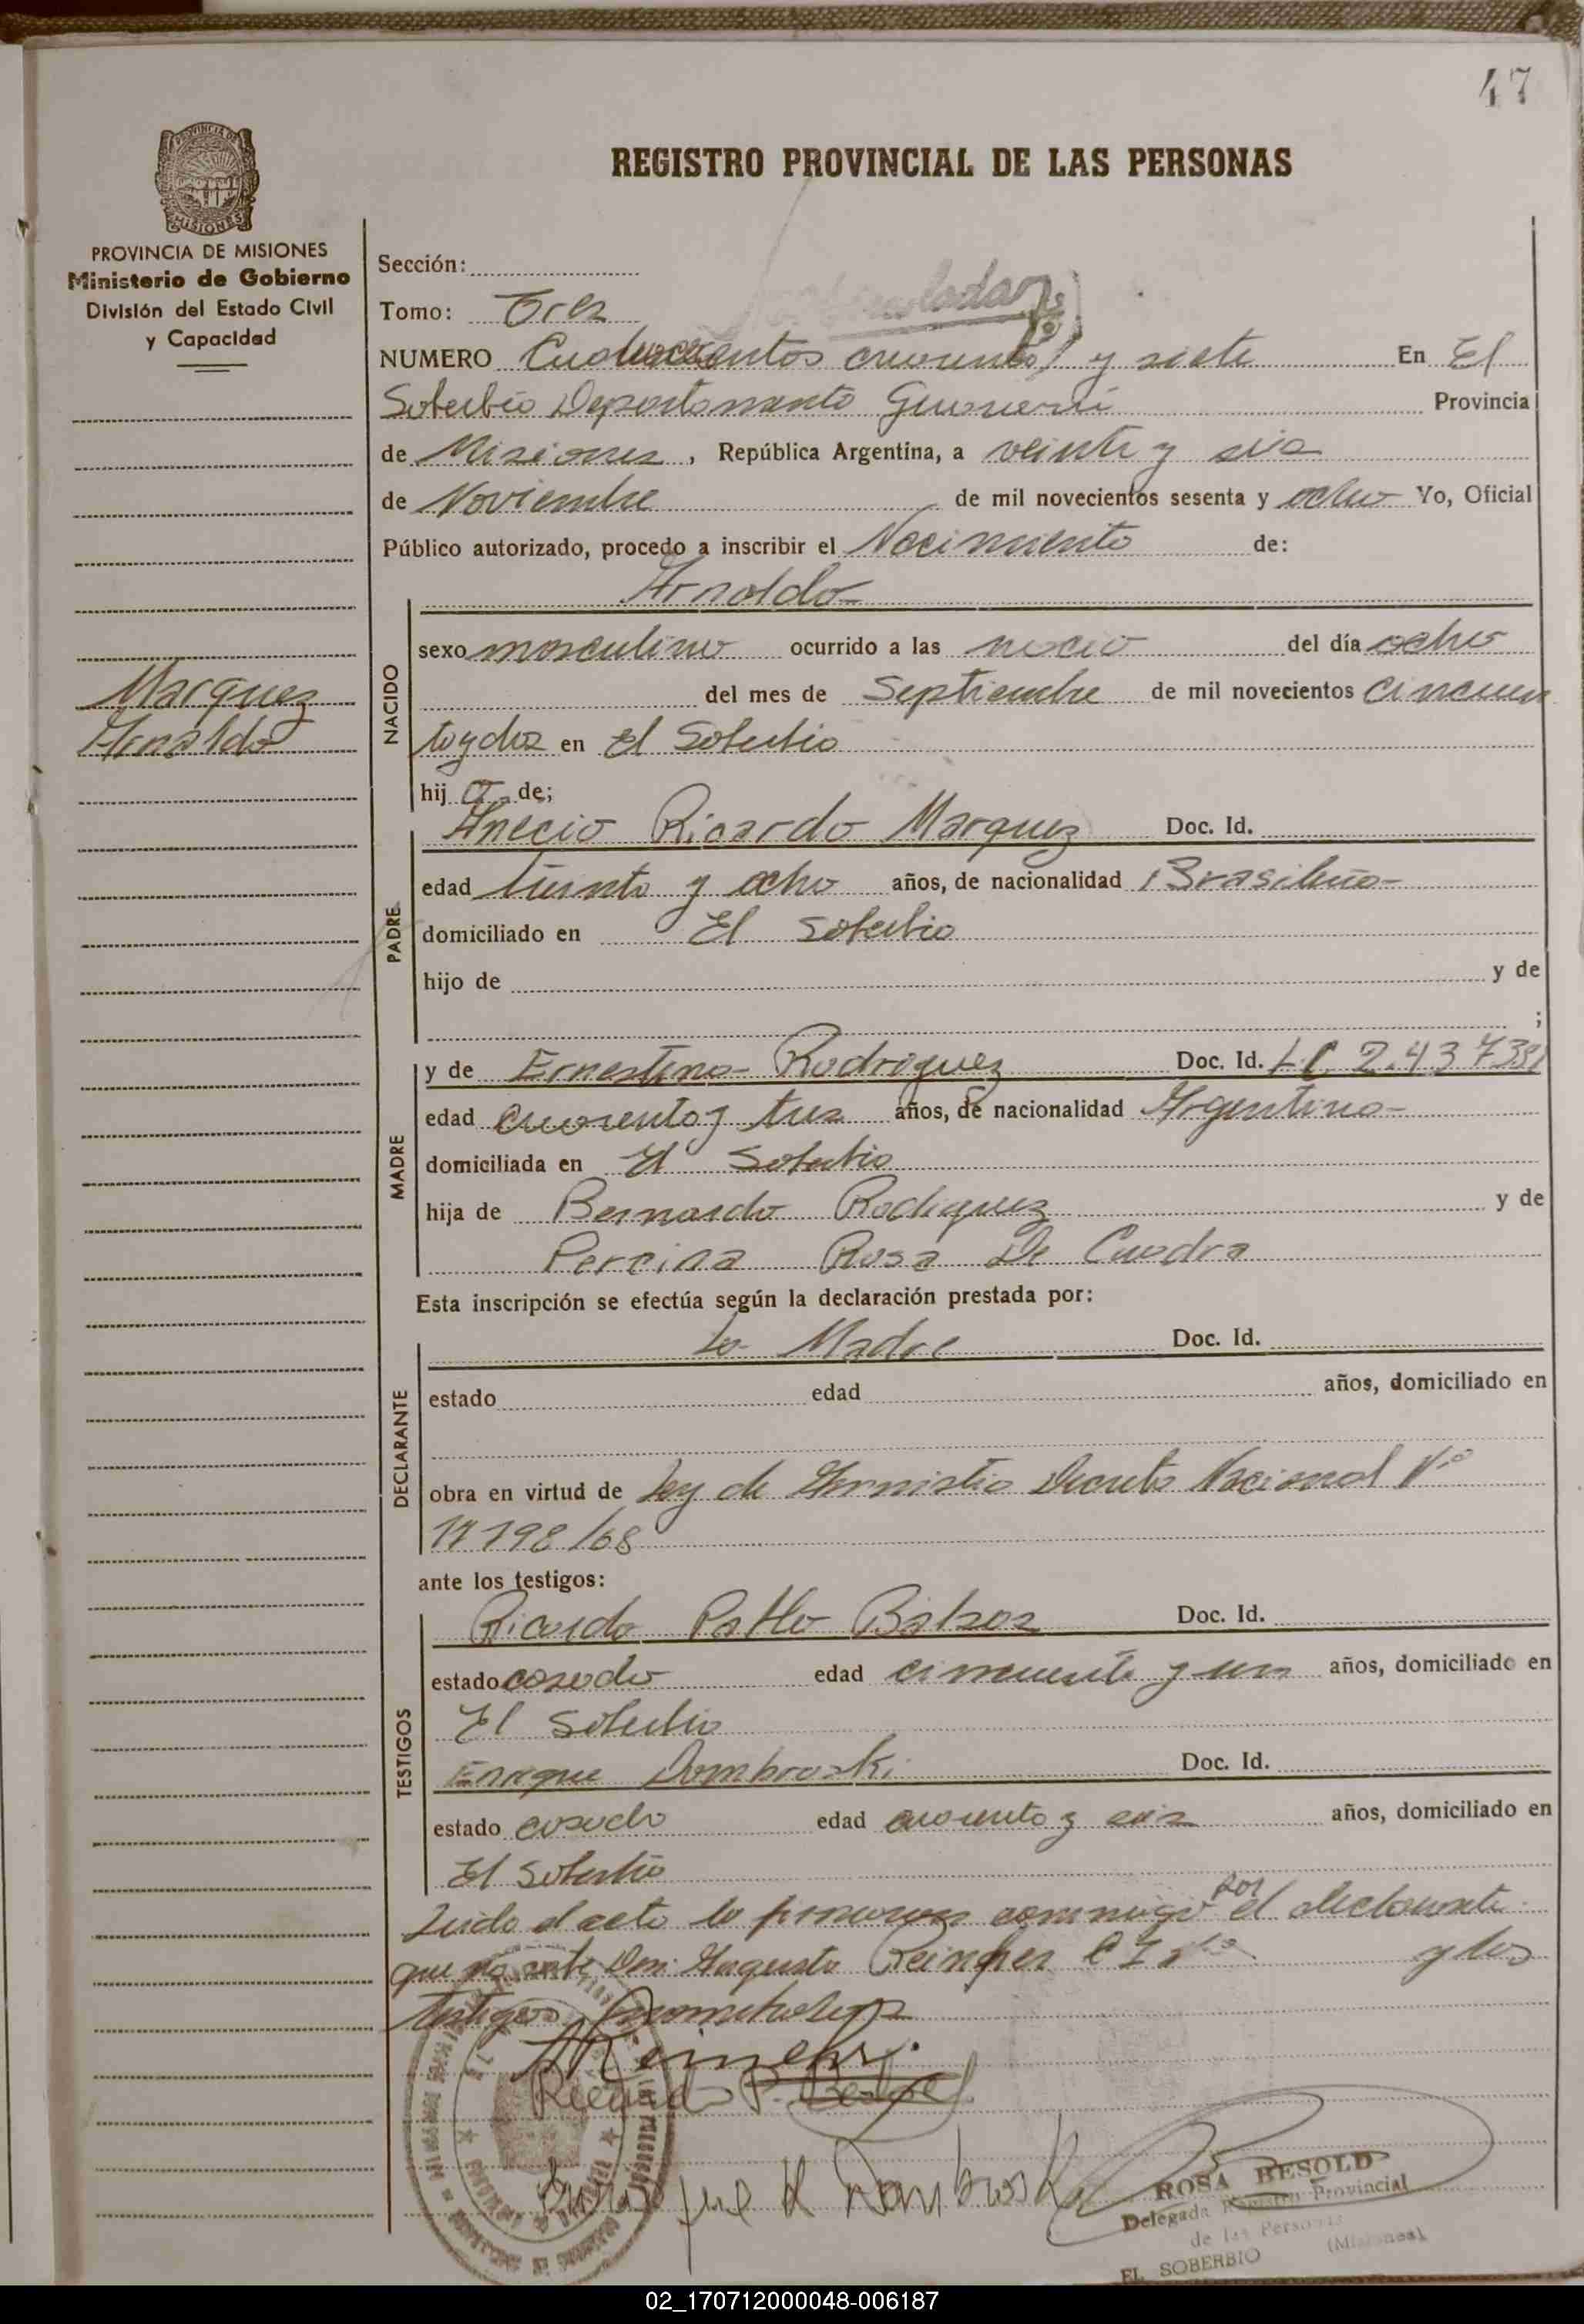 47
REGISTRO PROVINCIAL DE LAS PERSONAS
PROVINCIA DE MISIONES
Ministerio de Gobierno
División del Estado Civil
y Capacidad
Marquez
Arnaldo
Sección:
Tomo: Tres
NUMERO Cuatrocientos cuarenta y siete En El
Soberbio Departamento Guarani Provincia
de Misiones, República Argentina, a veinte y seis
de Noviembre de mil novecientos sesenta y ocho Yo, Oficial
Público autorizado, procedo a inscribir el Nacimiento de:
Arnoldo
NACIDO
sexo masculino ocurrido a las del día ocho
del mes de Septiembre de mil novecientos cincuen
ta y dos en El Soberbio
hij o de;
PADRE
Anecio Ricardo Marquez Doc. Id.
edad treinta y ocho años, de nacionalidad Brasileño
domiciliado en El Soberbio
hijo de y de
;
MADRE
y de Ernestina Rodriguez Doc. Id. L.C. 2.437381
edad cuarenta y tres años, de nacionalidad Argentina
domiciliada en El Soberbio
hija de Bernardo Rodriguez y de
Percina Rosa De Cuadra
Esta inscripción se efectúa según la declaración prestada por:
DECLARANTE
La Madre Doc. Id.
estado edad años, domiciliado en
obra en virtud de Ley de Amnistia Decreto Nacional Nº
17798/68
ante los testigos:
TESTIGOS
Ricardo Pablo Doc. Id.
estado casado edad cincuenta y un años, domiciliado en
El Soberbio
Enrique Dombroski Doc. Id.
estado casado edad cuarenta y seis años, domiciliado en
El Soberbio
Leido el acta la firmaron conmigo por el declarante
que no sabe Don Augusto C I y los
testigos
Ricardo P.
ROSA BESOLD
Delegada Registro Provincial
de las Personas
EL SOBERBIO (Misiones)
02_170712000048-006187